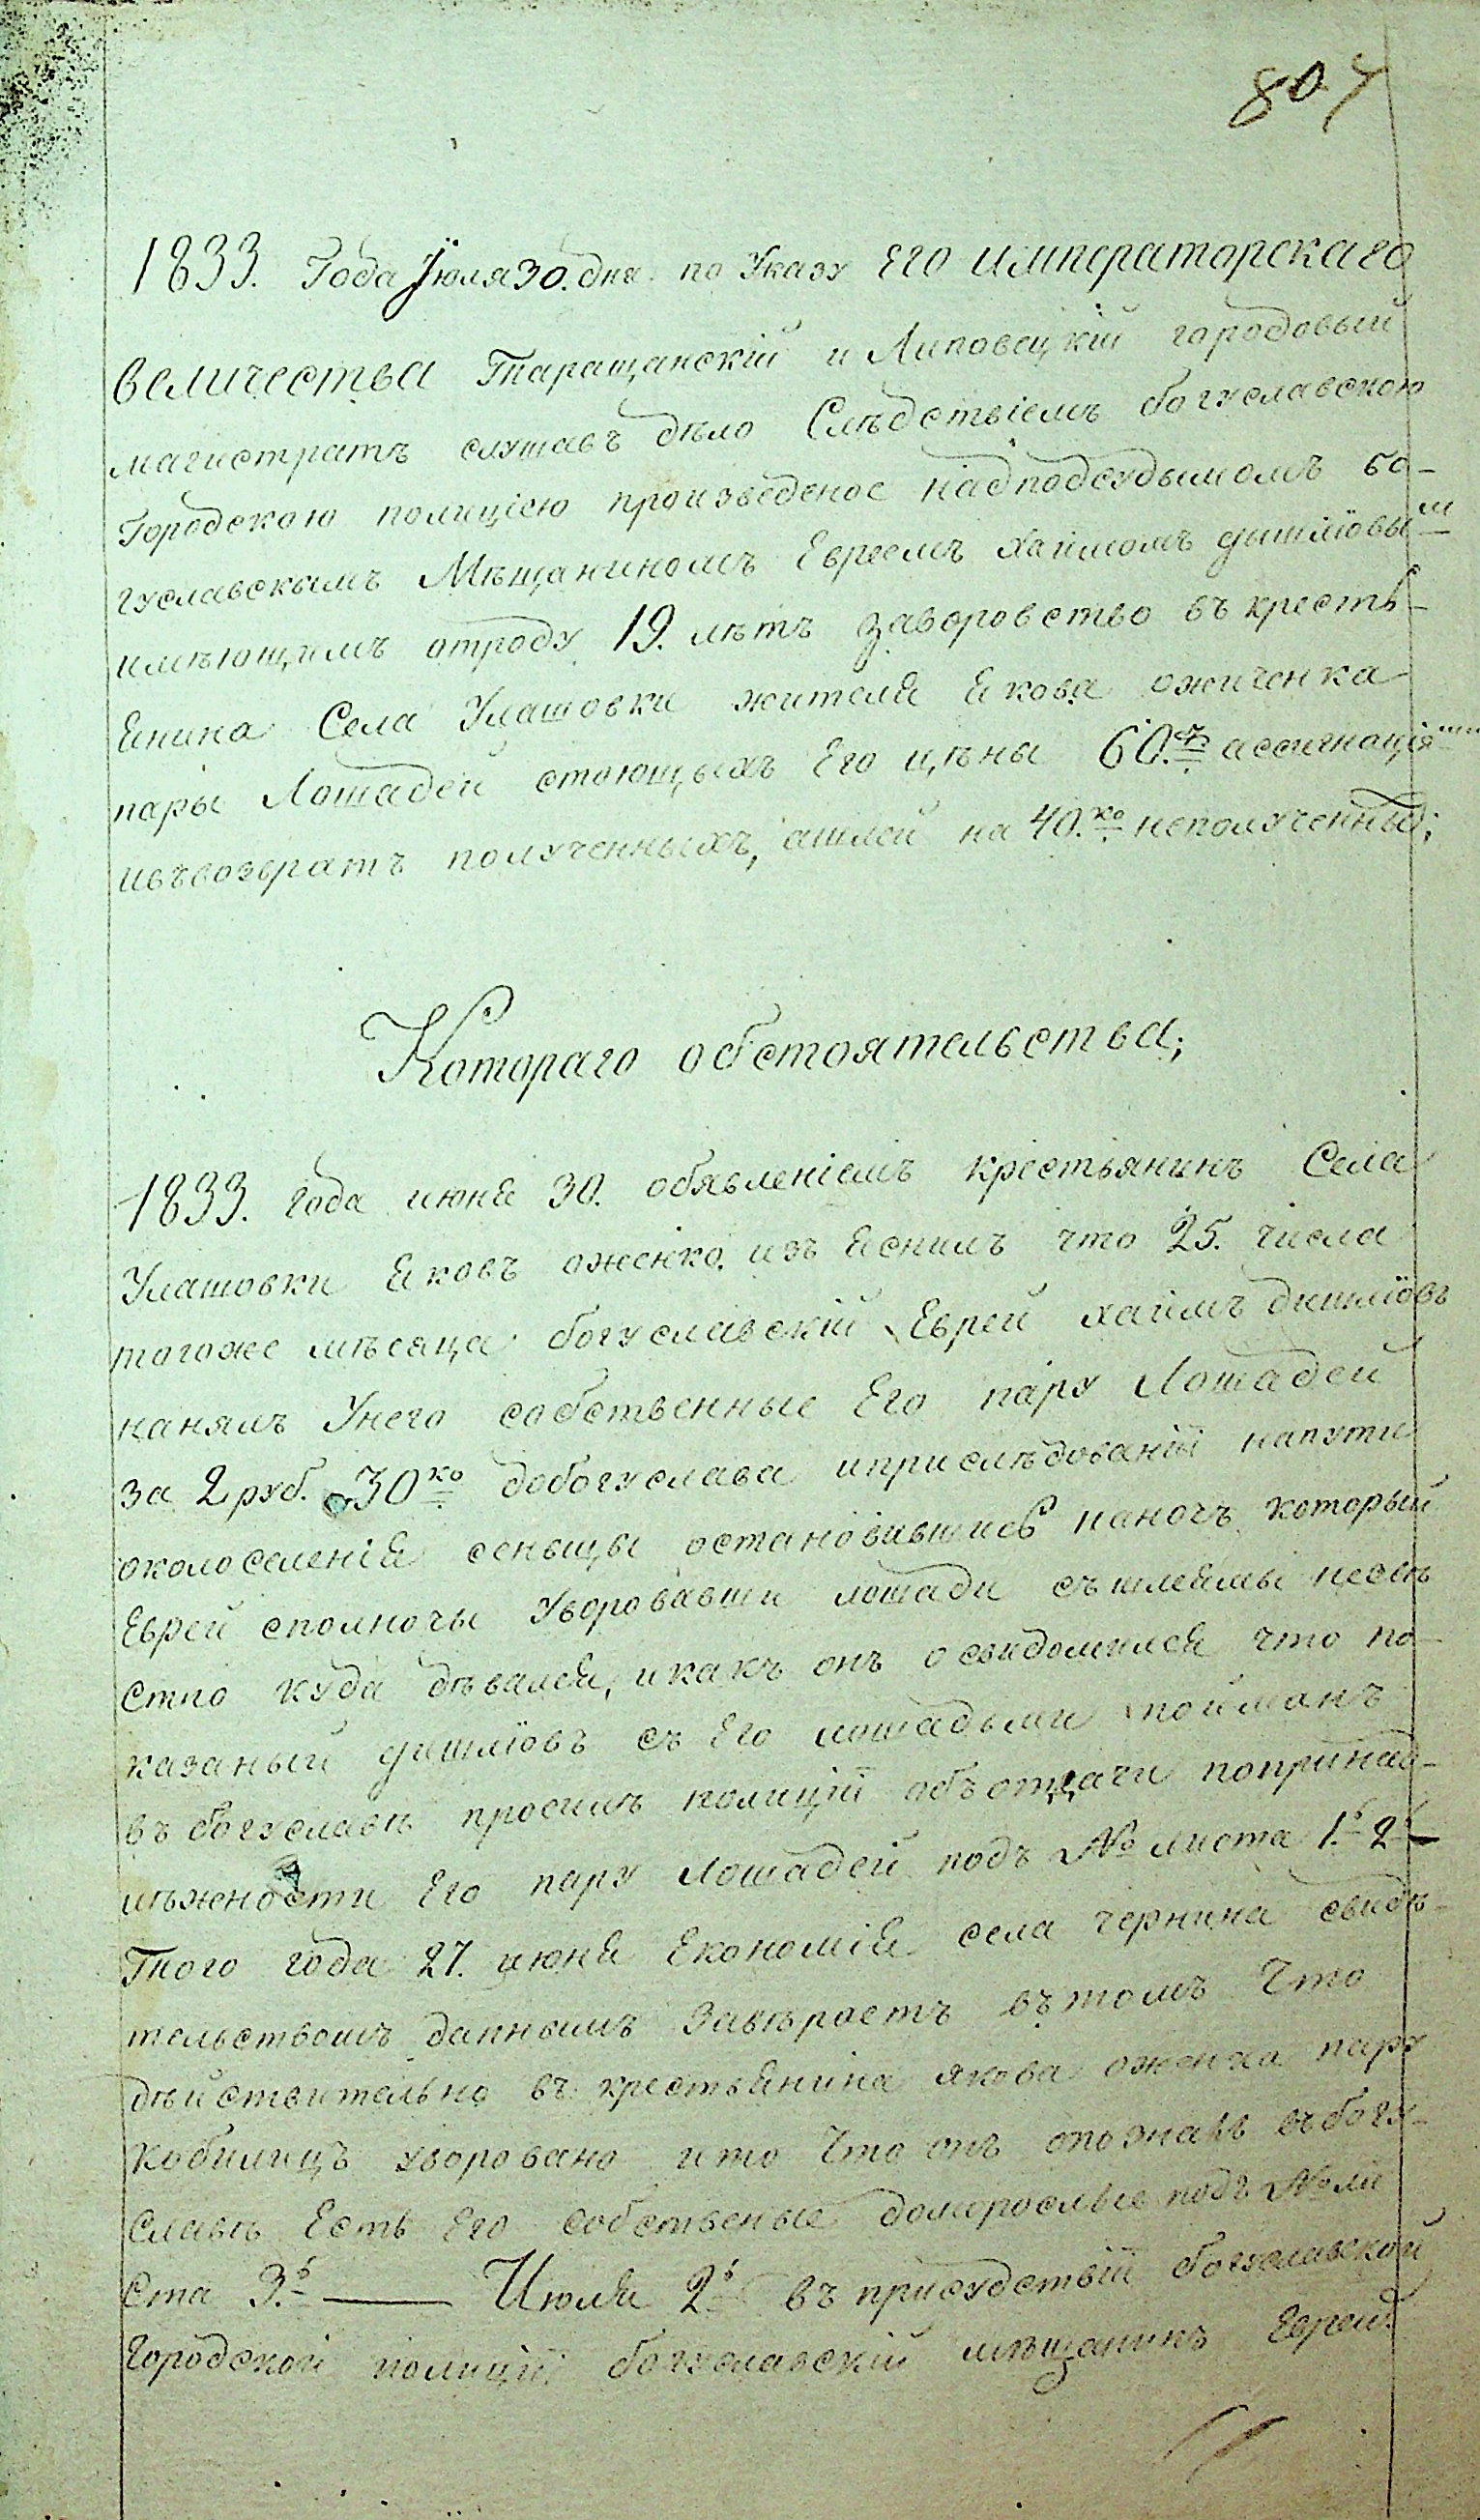 807
1833. Года Іюля 30. дня по Указу Его императорскаго
величества Таращанскій и Липовецкій городовый
магистратъ слушавъ дѣло Слѣдствіемъ богуславскою
Городскою полициею произведеное надподсудымомъ бо-
гуславскымъ Мѣщаниномъ Евреемъ Хаймомъ дишліовым
имѣющимъ отроду 19. лѣтъ заворовство въ кресть-
янина Села Улашовки жителя Якова ожиченка
пары Лошадей стоющыхъ Его цѣны 60. р. ассигнаціями
ивъвозвратъ полученныхъ, ашлей на 40. ко неполученных;
Котораго обстоятельства;
1833. года июня 30. обявленіемъ крестьянинъ Села
Улашовки Яковъ оженко изъяснилъ что 25. числа
тогоже мѣсяца богуславскій Еврей хаймъ дишліовъ
нанялъ Унего собственные Его пару Лошадей
за 2 руб. 30 ко добогуслава иприслѣдованіи напути
околоселенія сеньщы остановившись наночъ который
Еврей сполночы Уворовавши лошади съшлеямы неевѣ
стно куда дѣвался, икакъ онъ освидомился что по-
казаный дишліовъ съ Его лошадьми пойманъ
въ богуславѣ просилъ полиціи объотдачи попринад-
лѣжности Его пару Лошадей подъ № листа 1. 2
Того года 27. июня Економія села чернина свидѣ-
тельствомъ даннымъ Завѣраетъ въ томъ Что
дѣйствительно въ крестьянина якова оженка пару
кобилицъ уворовано ито Что онъ опозналъ въбогу-
славѣ Есть Его собственые доморослые подъ № ли
ста 3. Июля 2 въ присудствіи богуславской
Городской полиціи богуславскій мѣщанинъ Еврей